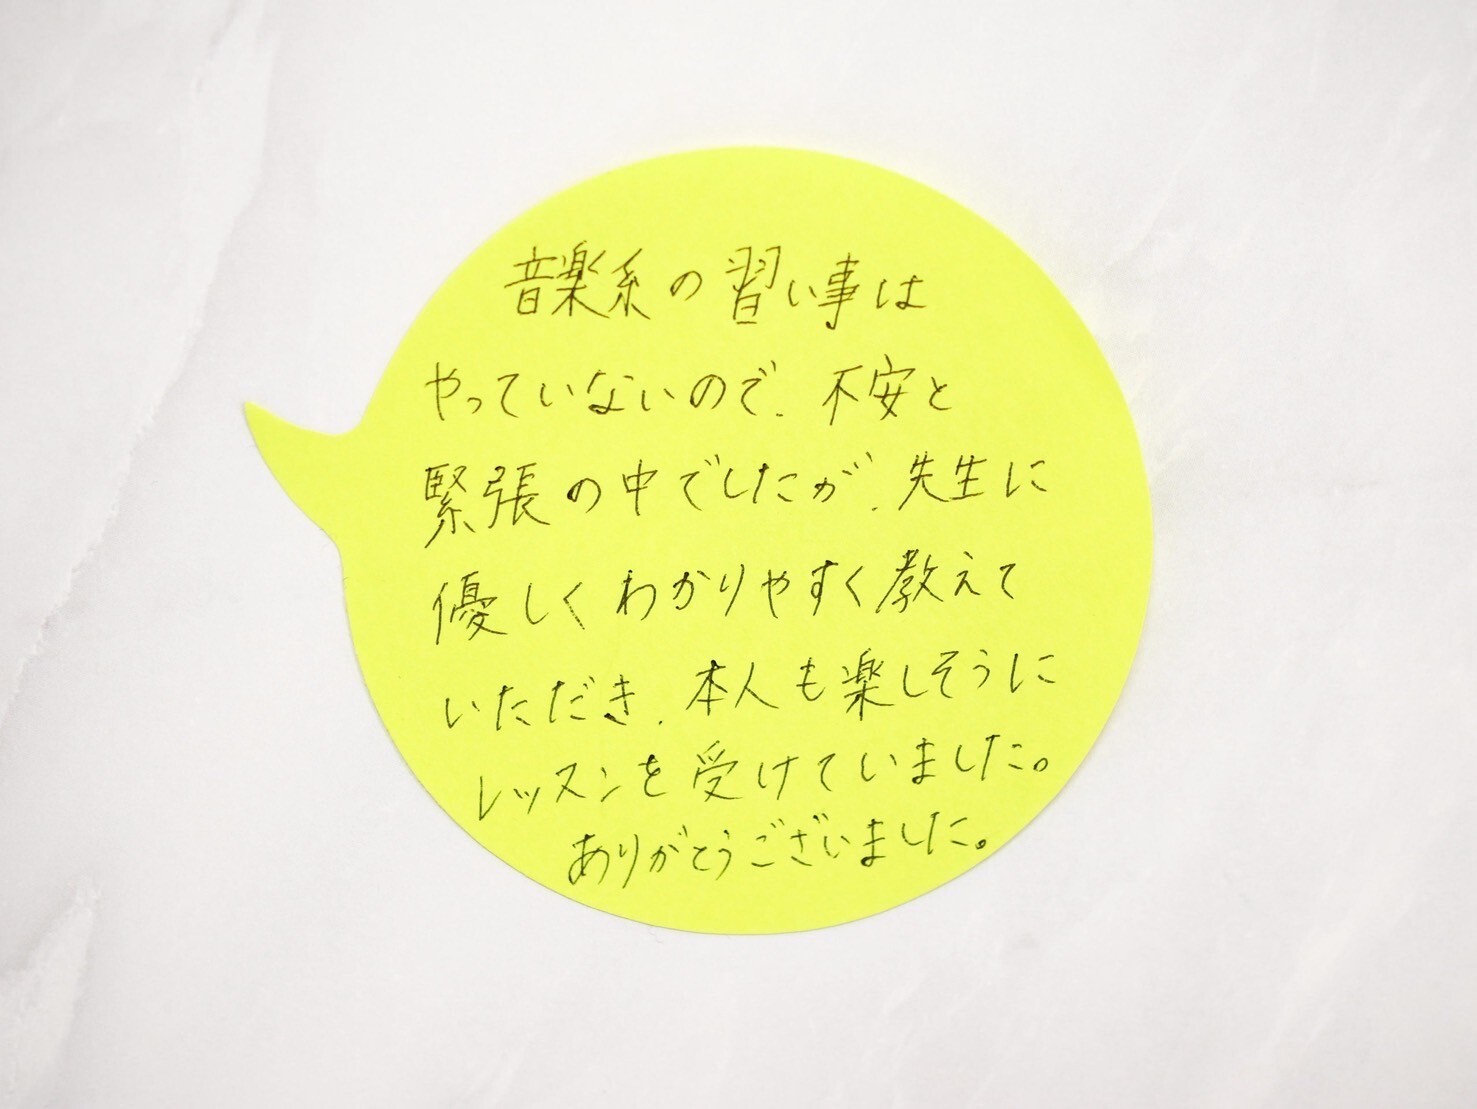 音楽系の習い事は
やっていないので、不安と
緊張の中でしたが、先生に
優しくわかりやすく教えて
いただき、本人も楽しそうに
レッスンを受けていました。
ありがとうございました。